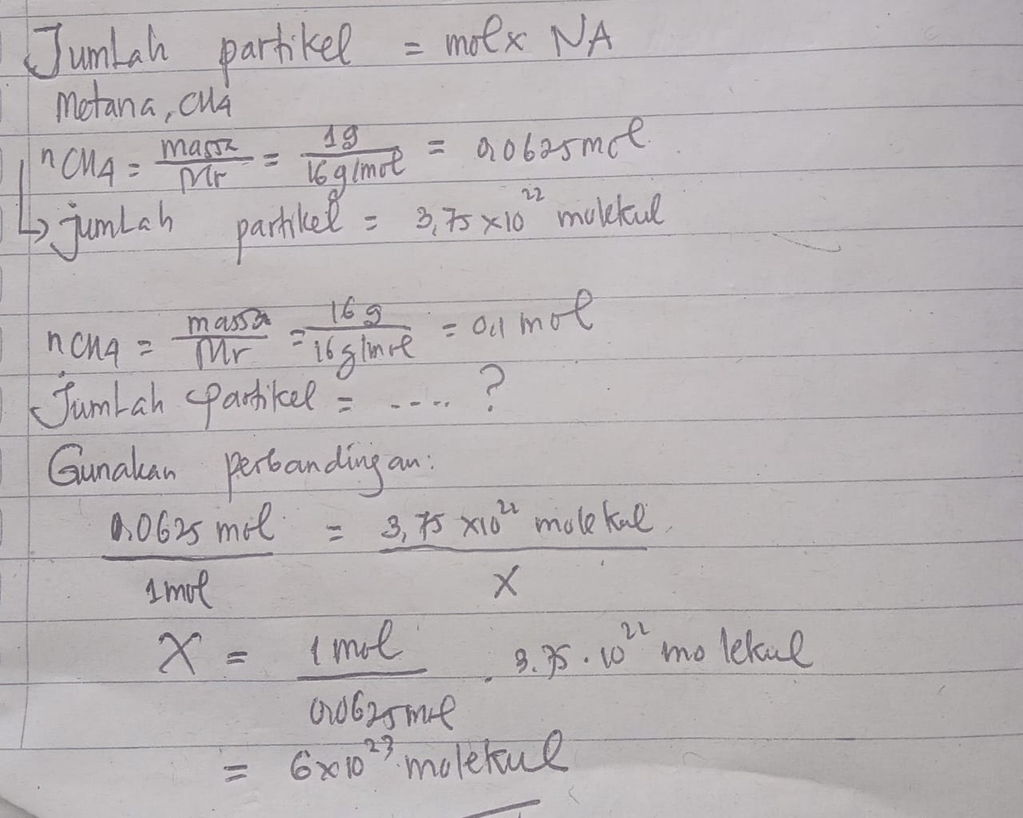 Jumlah partikel = mol x NA
Metana, CH4
nCH4 = massa/Mr = 1g/16 g/mol = 0,0625 mol
↳ jumlah partikel = 3,75 x 10²² molekul
nCH4 = massa/Mr = 16 g/16 g/mol = 0,1 mol
Jumlah partikel = ..... ?
Gunakan perbandingan:
0.0625 mol/1 mol = 3,75 x10²² molekul/X
X = 1 mol/0,0625 mol . 3.75 . 10²² molekul
= 6x10²³ molekul